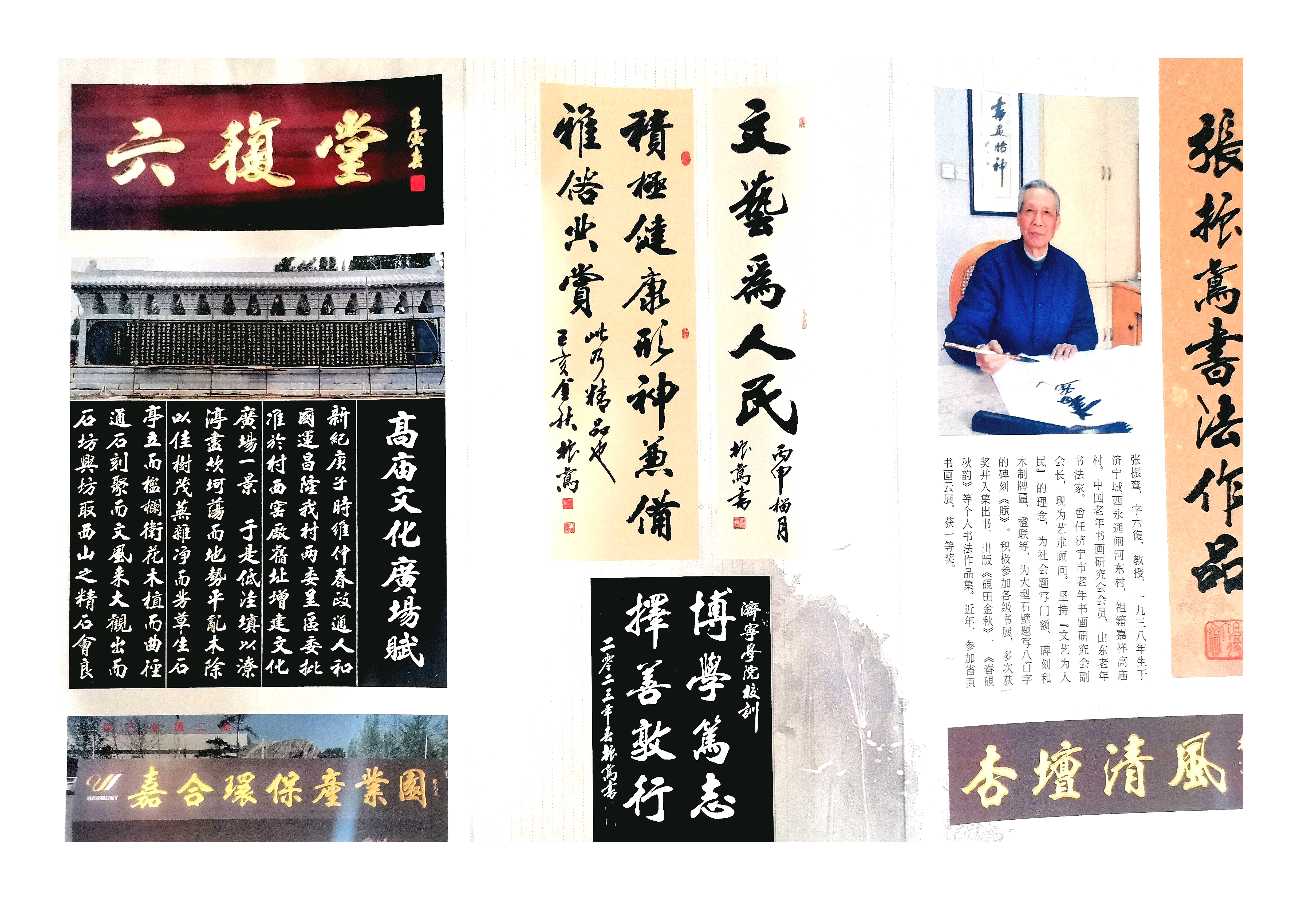 張振騫書法作品
書道精神
张振骞，字六復，教授，一九三八年生于
济宁城西永通闸河东村，祖籍嘉祥高庙
村。中国老年书画研究会会员，山东老年
书法家，曾任济宁市老年书画研究会副
会长，现为艺术顾问。坚持『文艺为人
民』的理念，为社会题写门额、碑刻和
木制牌匾、楹联等，为大型石壁题写八百字
的碑刻《赋》。积极参加各级书展，多次获
奖并入集出书，出版《砚田金秋》《春砚
秋韵》等个人书法作品集。近年，参加省页
书画云展，获一等奖。
杏壇清風
文藝爲人民
丙申榴月
振騫書
積極健康形神兼備
雅俗共賞
此乃精品也
己亥金秋振騫
濟寧學院校訓
博學篤志
擇善敦行
二零二三年春振騫書
六復堂
高庙文化廣場賦
新紀庚子時維仲春政通人和
國運昌隆我村兩委呈區委批
准於村西窑廠舊址增建文化
廣場一景 于是低洼填以漆
渟盡坎坷蕩而地勢平亂木除
以佳樹茂蕪雜净而芳草生石
亭立而檻欄衛花木植而曲徑
通石刻聚而文風来大觀出而
石坊興坊取西山之精石會良
嘉合環保產業園